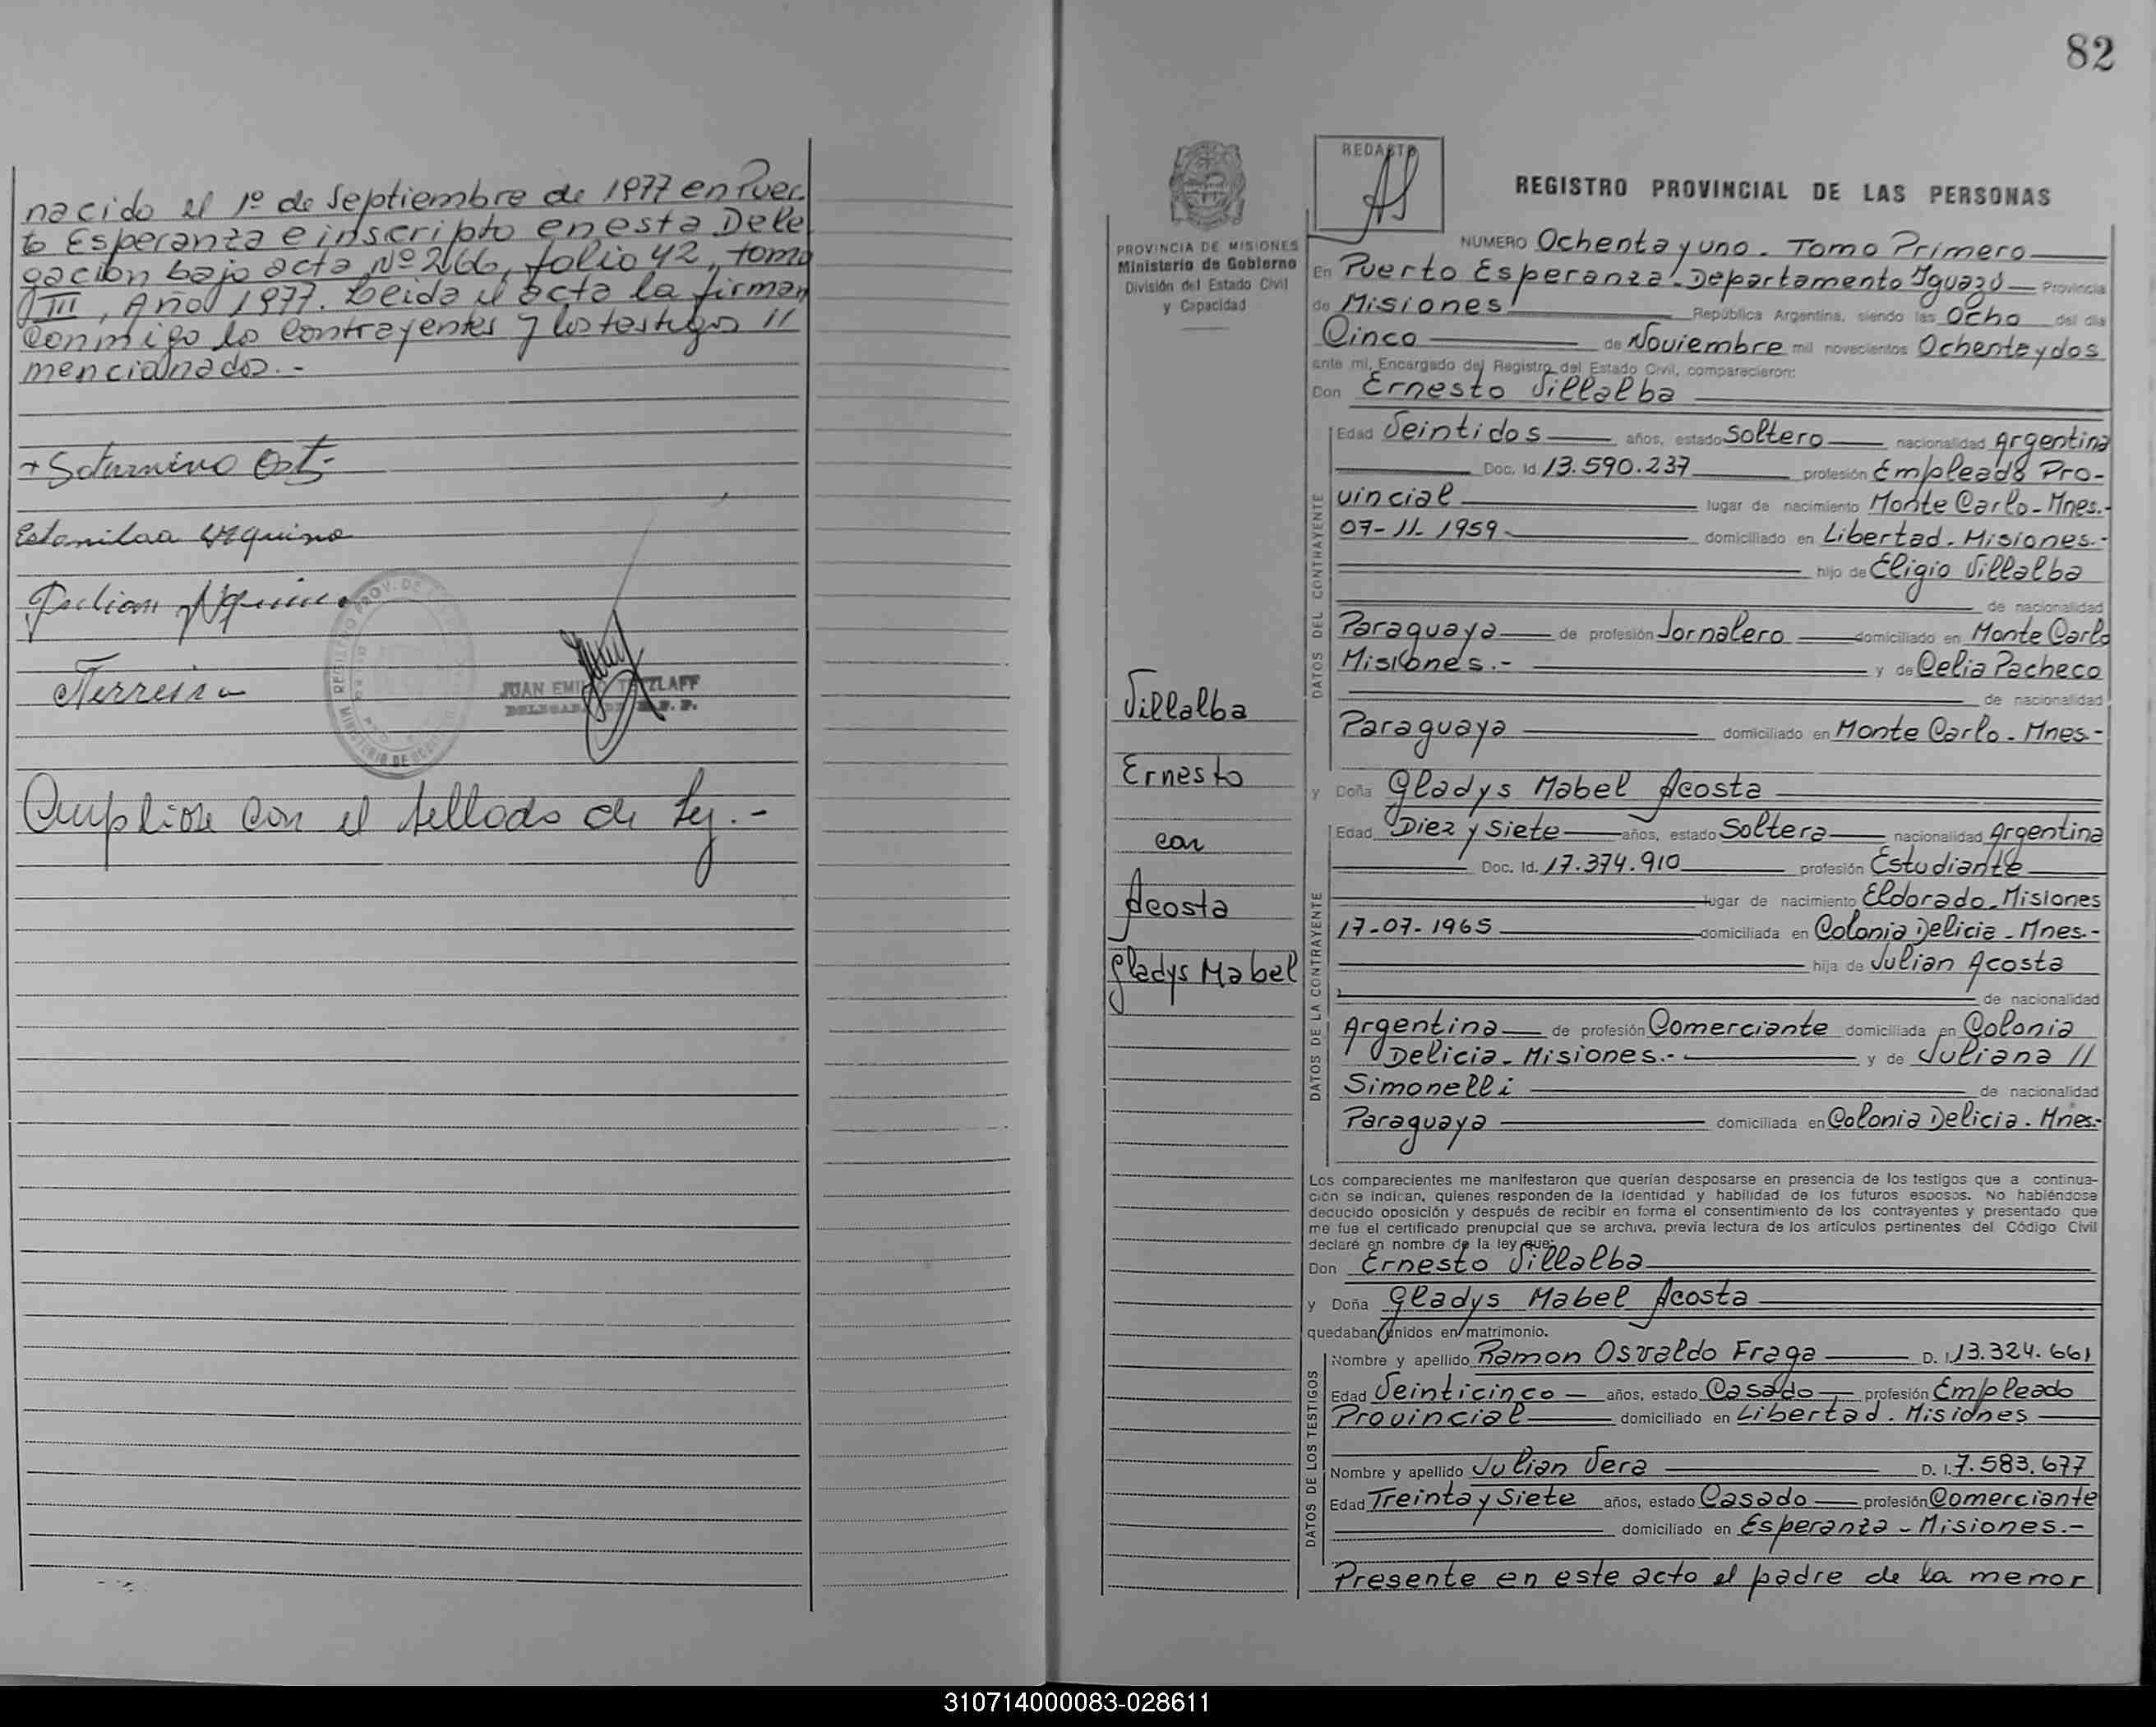 nacido el 1º de Septiembre de 1977 en Puer-
to Esperanza e inscripto en esta Dele
gación bajo acta Nº 266, folio 42, tomo
III, Año 1977. Leida el acta la firman
conmigo los contrayentes y los testigos //
mencionados.-
+ Saturnino Ort
Estanilaa Aquino
Julian Aquino
Ferreira
REGISTRO PROV. DE
MINISTERIO DE
JUAN EMI TZLAFF
Cumpliose con el sellado de Ley.-
82
REDACTO
REGISTRO PROVINCIAL DE LAS PERSONAS
PROVINCIA DE MISIONES
Ministerio de Gobierno
División del Estado Civil
y Capacidad
Villalba
Ernesto
con
Acosta
Gladys Mabel
NUMERO Ochenta y uno - Tomo Primero
En Puerto Esperanza - Departamento Iguazú Provincia
de Misiones República Argentina, siendo las Ocho del día
Cinco de Noviembre mil novecientos Ochenta y dos
ante mi, Encargado del Registro del Estado Civil, comparecieron:
Don Ernesto Villalba
DATOS DEL CONTRAYENTE
Edad Veintidos años, estado Soltero nacionalidad Argentina
Doc. Id. 13.590.237 profesión Empleado Pro-
vincial lugar de nacimiento Monte Carlo - Mnes.-
07-11-1959 domiciliado en Libertad - Misiones.-
hijo de Eligio Villalba
de nacionalidad
Paraguaya de profesión Jornalero domiciliado en Monte Carlo
Misiones.- y de Celia Pacheco
de nacionalidad
Paraguaya domiciliado en Monte Carlo - Mnes-
y Doña Gladys Mabel Acosta
DATOS DE LA CONTRAYENTE
Edad Diez y Siete años, estado Soltera nacionalidad Argentina
Doc. Id. 17.374.910 profesión Estudiante
lugar de nacimiento Eldorado - Misiones
17-07-1965 domiciliada en Colonia Delicia - Mnes.-
hija de Julian Acosta
de nacionalidad
Argentina de profesión Comerciante domiciliada en Colonia
Delicia - Misiones.- y de Juliana //
Simonelli de nacionalidad
Paraguaya domiciliada en Colonia Delicia - Mnes.-
Los comparecientes me manifestaron que querían desposarse en presencia de los testigos que a continua-
ción se indican, quienes responden de la identidad y habilidad de los futuros esposos. No habiéndose
deducido oposición y después de recibir en forma el consentimiento de los contrayentes y presentado que
me fue el certificado prenupcial que se archiva, previa lectura de los artículos pertinentes del Código Civil
declaré en nombre de la ley que:
Don Ernesto Villalba
y Doña Gladys Mabel Acosta
quedaban unidos en matrimonio.
DATOS DE LOS TESTIGOS
Nombre y apellido Ramon Osvaldo Fraga D. I. 13.324.661
Edad Veinticinco años, estado Casado profesión Empleado
Provincial domiciliado en Libertad - Misiones
Nombre y apellido Julian Vera D. I. 7.583.677
Edad Treinta y Siete años, estado Casado profesión Comerciante
domiciliado en Esperanza - Misiones.-
Presente en este acto el padre de la menor
310714000083-028611